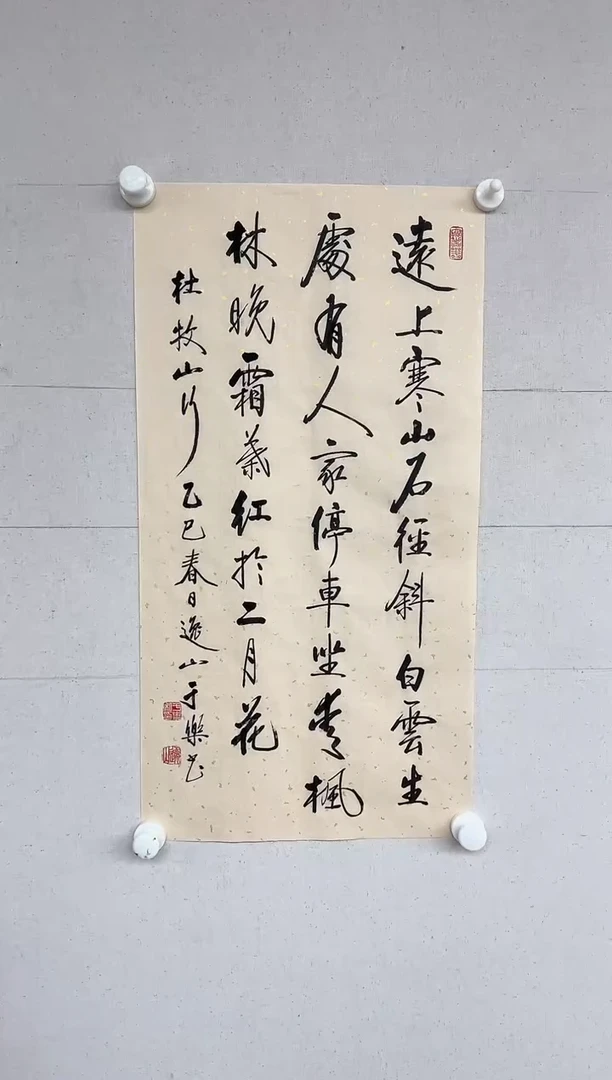 遠上寒山石徑斜白雲生
處有人家停車坐愛楓
林晚霜葉紅於二月花
杜牧山行乙巳春日逸山于樂书